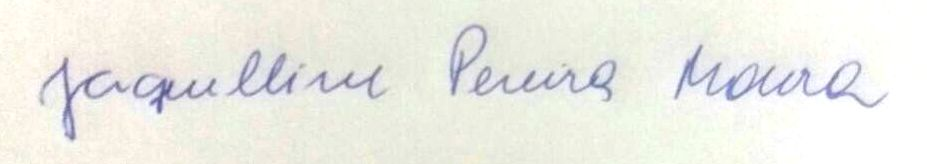 Jaquelline Pereira Moura